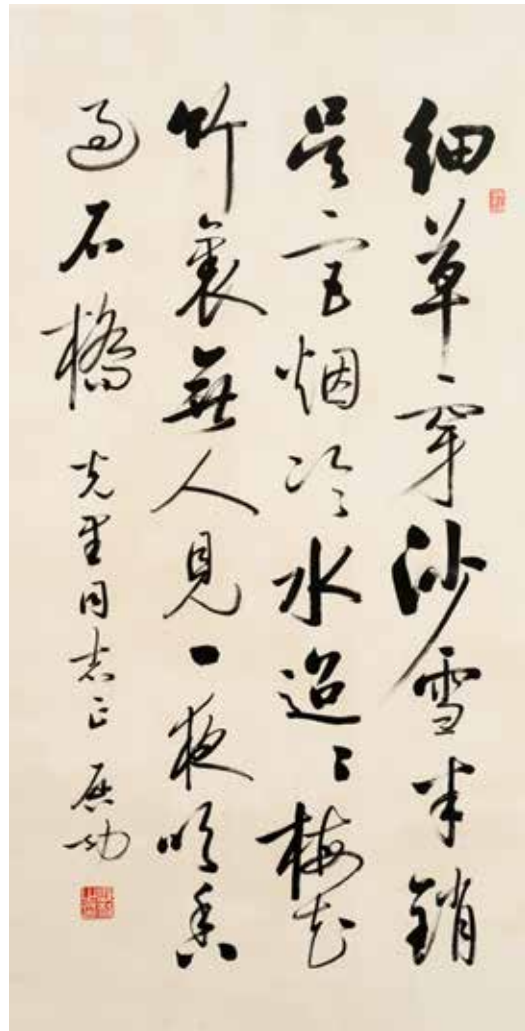 細草穿沙雪半銷
吴宫烟冷水迢〻梅花
竹裏無人見一夜吹香
過石橋 同志正 启功